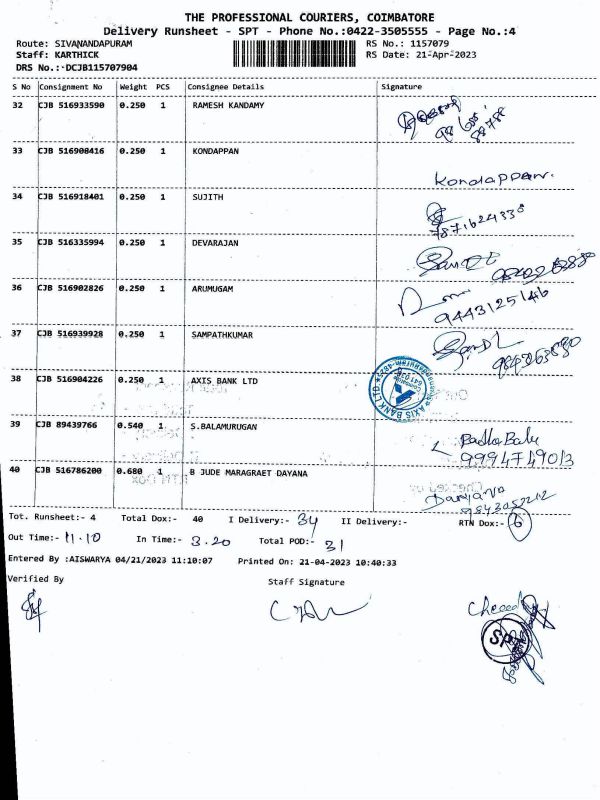 THE PROFESSIONAL COURIERS, COIMBATORE
Delivery Runsheet - SPT - Phone No.:0422-3505555 - Page No.:4
Route: SIVANANDAPURAM RS No.: 1157079
Staff: KARTHICK RS Date: 21-Apr-2023
DRS No.: DCJB115707904
S No Consignment No Weight PCS Consignee Details Signature
32 CJB 516933590 0.250 1 RAMESH KANDAMY
33 CJB 516908416 0.250 1 KONDAPPAN
Kondappan.
34 CJB 516918401 0.250 1 SUJITH
7871624338
35 CJB 516335994 0.250 1 DEVARAJAN
36 CJB 516902826 0.250 1 ARUMUGAM
9443125146
37 CJB 516939928 0.250 1 SAMPATHKUMAR
38 CJB 516904226 0.250 1 AXIS BANK LTD
AXIS BANK LTD
39 CJB 89439766 0.540 1 S.BALAMURUGAN
9994749013
40 CJB 516786200 0.680 1 B JUDE MARAGRAET DAYANA
Tot. Runsheet:- 4 Total Dox:- 40 I Delivery:- 34 II Delivery:- RTN Dox:- 6
Out Time:- 11.10 In Time:- 3.20 Total POD:- 31
Entered By :AISWARYA 04/21/2023 11:10:07 Printed On: 21-04-2023 10:40:33
Verified By Staff Signature
SPT